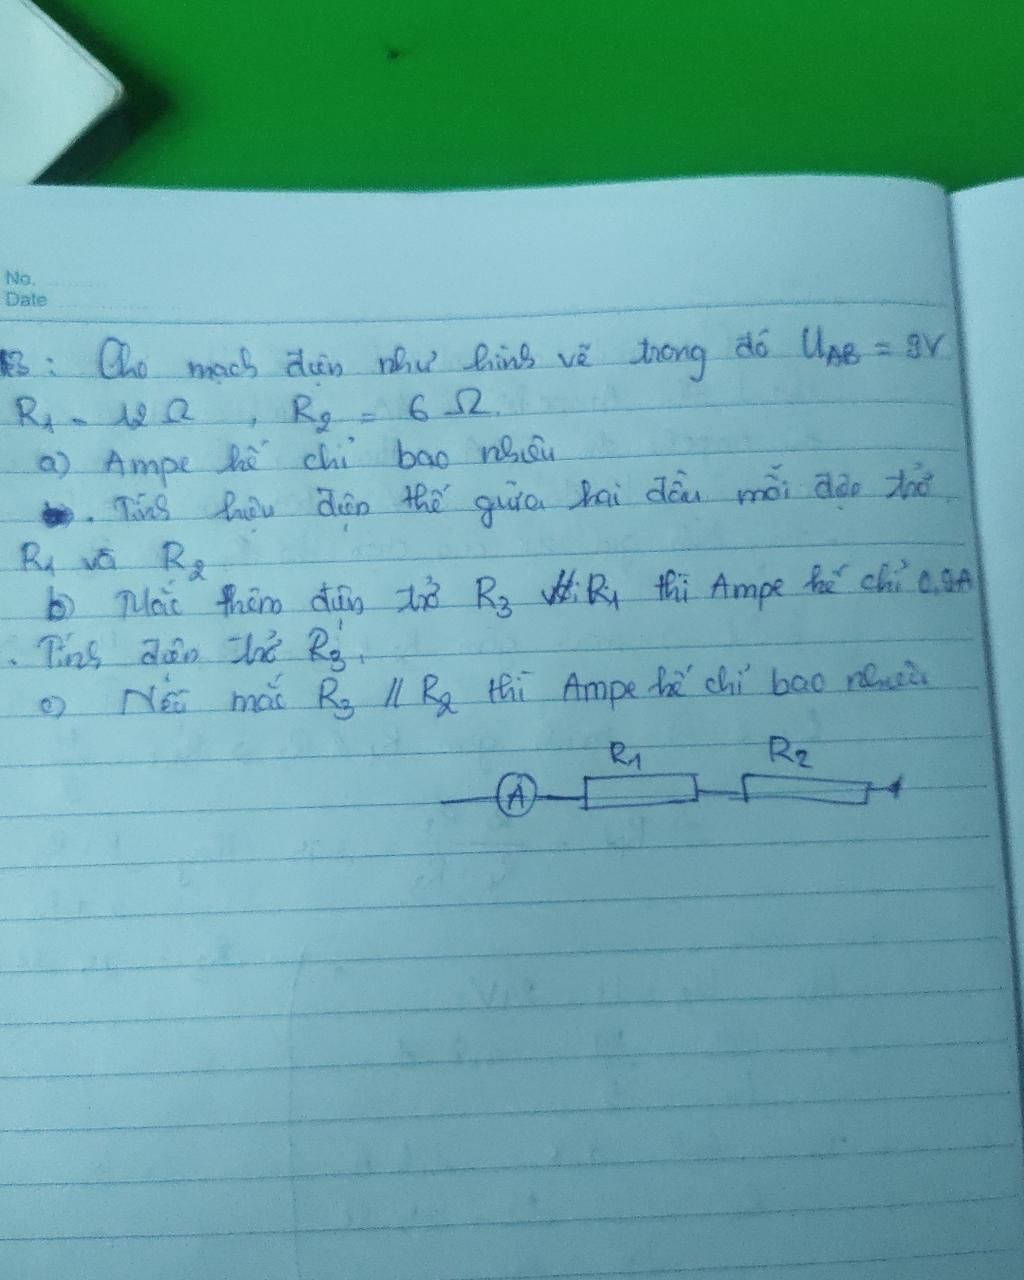 No.
Date
B3: Cho mạch điện như hình vẽ trong đó UAB = 9V
R1 = 12 Ω , R2 = 6 Ω.
a) Ampe kế chỉ bao nhiêu
. Tính hiệu điện thế giữa hai đầu mỗi điện trở
R1 và R2
b) Mắc thêm điện trở R3 // R1 thì Ampe kế chỉ 0,9A
. Tính điện trở R3.
c) Nếu mắc R3 // R2 thì Ampe kế chỉ bao nhiêu
R1 R2
A